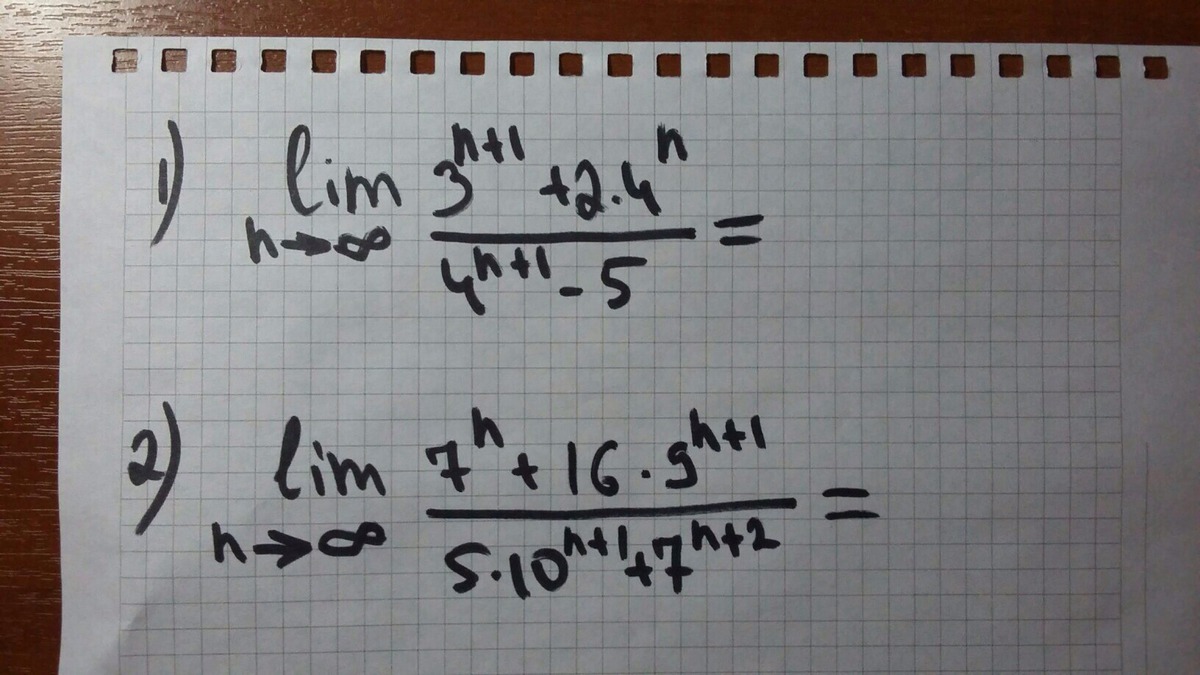 1) lim n→∞ (3^(n+1) + 2·4^n) / (4^(n+1) - 5) =
2) lim n→∞ (7^n + 16·9^(n+1)) / (5·10^(n+1) + 7^(n+2)) =